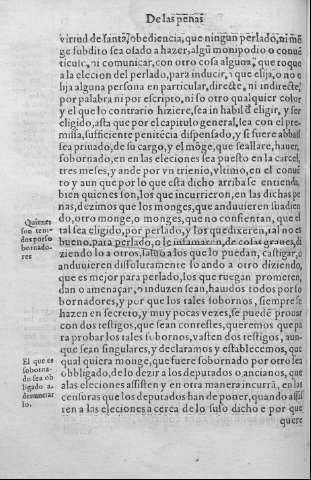 De las penas
virtud de sancta, obediencia, que ningun perlado, ni mõ
ge subdito sea osado a hazer, algũ monipodio o conuẽ
ticulo, ni comunicar, con otro cosa alguna, que toque
a la elecion del perlado, para inducir, que elija, o no e
lija alguna persona en particular, directe, ni indirecte,
por palabra ni por escripto, ni so otro qualquier color
y el que lo contrario hiziere, sea in habil d̃ eligir, y ser
eligido, asta que por el capitulo general, sea con el pre-
missa, sufficiente penitẽcia dispensado, y si fuere abbad
sea priuado, de su cargo, y el mõge, que se allare, hauer,
sobornado, en en las eleciones sea puesto en la carcel,
tres meses, y ande por vn trienio, vltimo, en el conuẽ
to y aun que por lo que esta dicho arriba se entienda,
bien quienes son, los que incurrieron, en las dichas pe
nas, dezimos que los monges, que anduuieren suadien
do, otro monge, o monges, que no consientan, que el
tal sea eligido, por perlado, y los que dixeren, tal no es
bueno, para perlado, o le infamaren, de cosas graues, di
ziendo lo a otros, latuo a los que lo puedan, castigar, o
anduuieren dissoluramente lo ando a otro diziendo,
que es mejor para perlado, los que ruegan prometen,
dan o amenaçar, o induzen sean, hauidos todos por so
bornadores, y por que los tales sobornos, siempre se
hazen en secreto, y muy pocas vezes, se puedẽ prouar
con dos testigos, que sean contestes, queremos que pa
ra probar los tales sobornos, vasten dos testigos, aun-
que sean singulares, y declaramos y establecemos, que
qual quiera monge, que fuere sobornado por otro sea
obbligado, de lo dezir a los deputados o ancianos, que
a las eleciones assisten y en otra manera incurrã, en las
censuras que los deputados han de poner, quando assis
ten a las eleciones a cerca de lo suso dicho e por que
quere
Quienes
son teni-
dos por so
bornado-
res
El que es
soborna-
do sea ob
ligado a,
denunciar
lo.